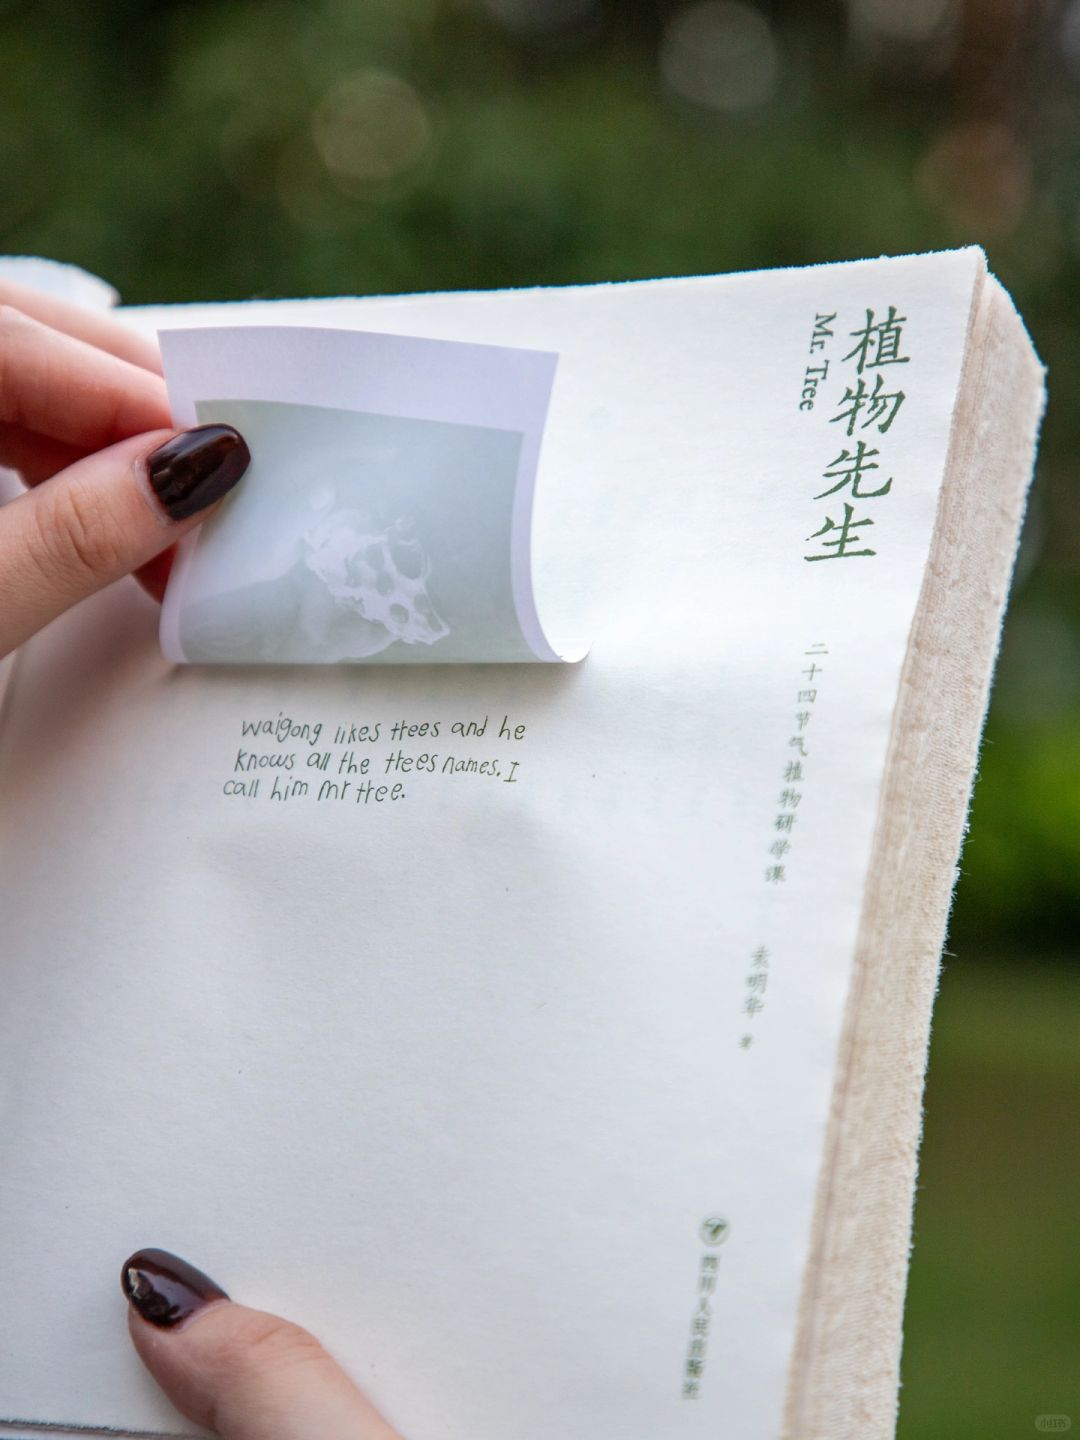 植物先生
Mr. Tree
二十四节气植物研学课
袁明华 著
四川人民出版社
waigong likes trees and he
knows all the trees names. I
call him mr tree.
小红书